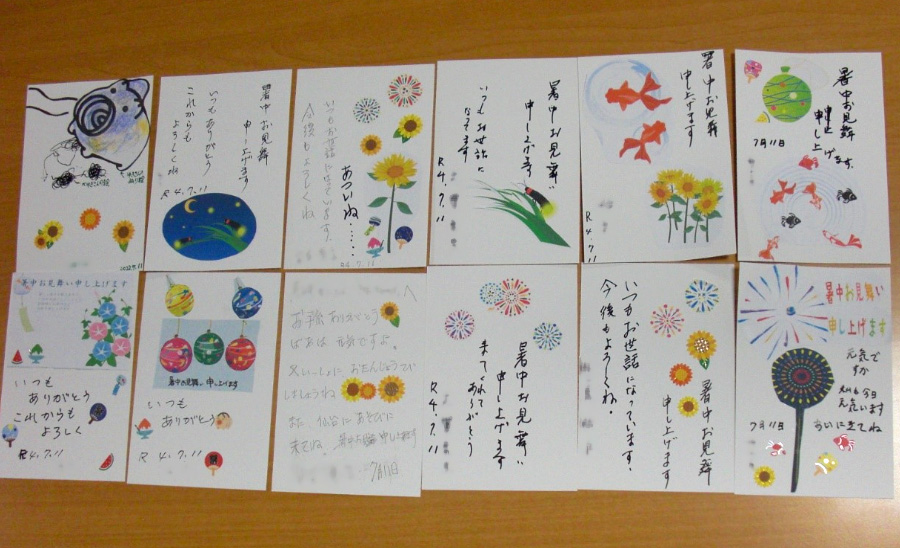 2022.7.11
暑中お見舞
申し上げます
いつもありがとう
これからも
よろしくね
R4.7.11
いつもお世話になっています。
今後もよろしくね
あついね……
R4.7.11
暑中お見舞い
申し上げます
いつもお世話に
なってます
R4.7.11
暑中お見舞
申し上げます
R4.7.11
暑中お見舞
申し上げます。
7月11日
暑中お見舞い申し上げます
いつも
ありがとう
これからも
よろしく
R4.7.11
暑中お見舞い申し上げます
いつも
ありがとう
R4.7.11
お手紙ありがとう
ばあは元気ですよ。
8月いっしょにおたんじょうかい
しましょうね
また、仏谷にあそびに
来てね。暑中お見舞申し上げます
7月11日
暑中お見舞い
申し上げます
来てくれてありがとう
R4.7.11
暑中お見舞
申し上げます
いつもお世話になっています。
今後もよろしくね。
暑中お見舞い
申し上げます
元気で
すか
私も今日
元気でいます
あいに来てね
7月11日